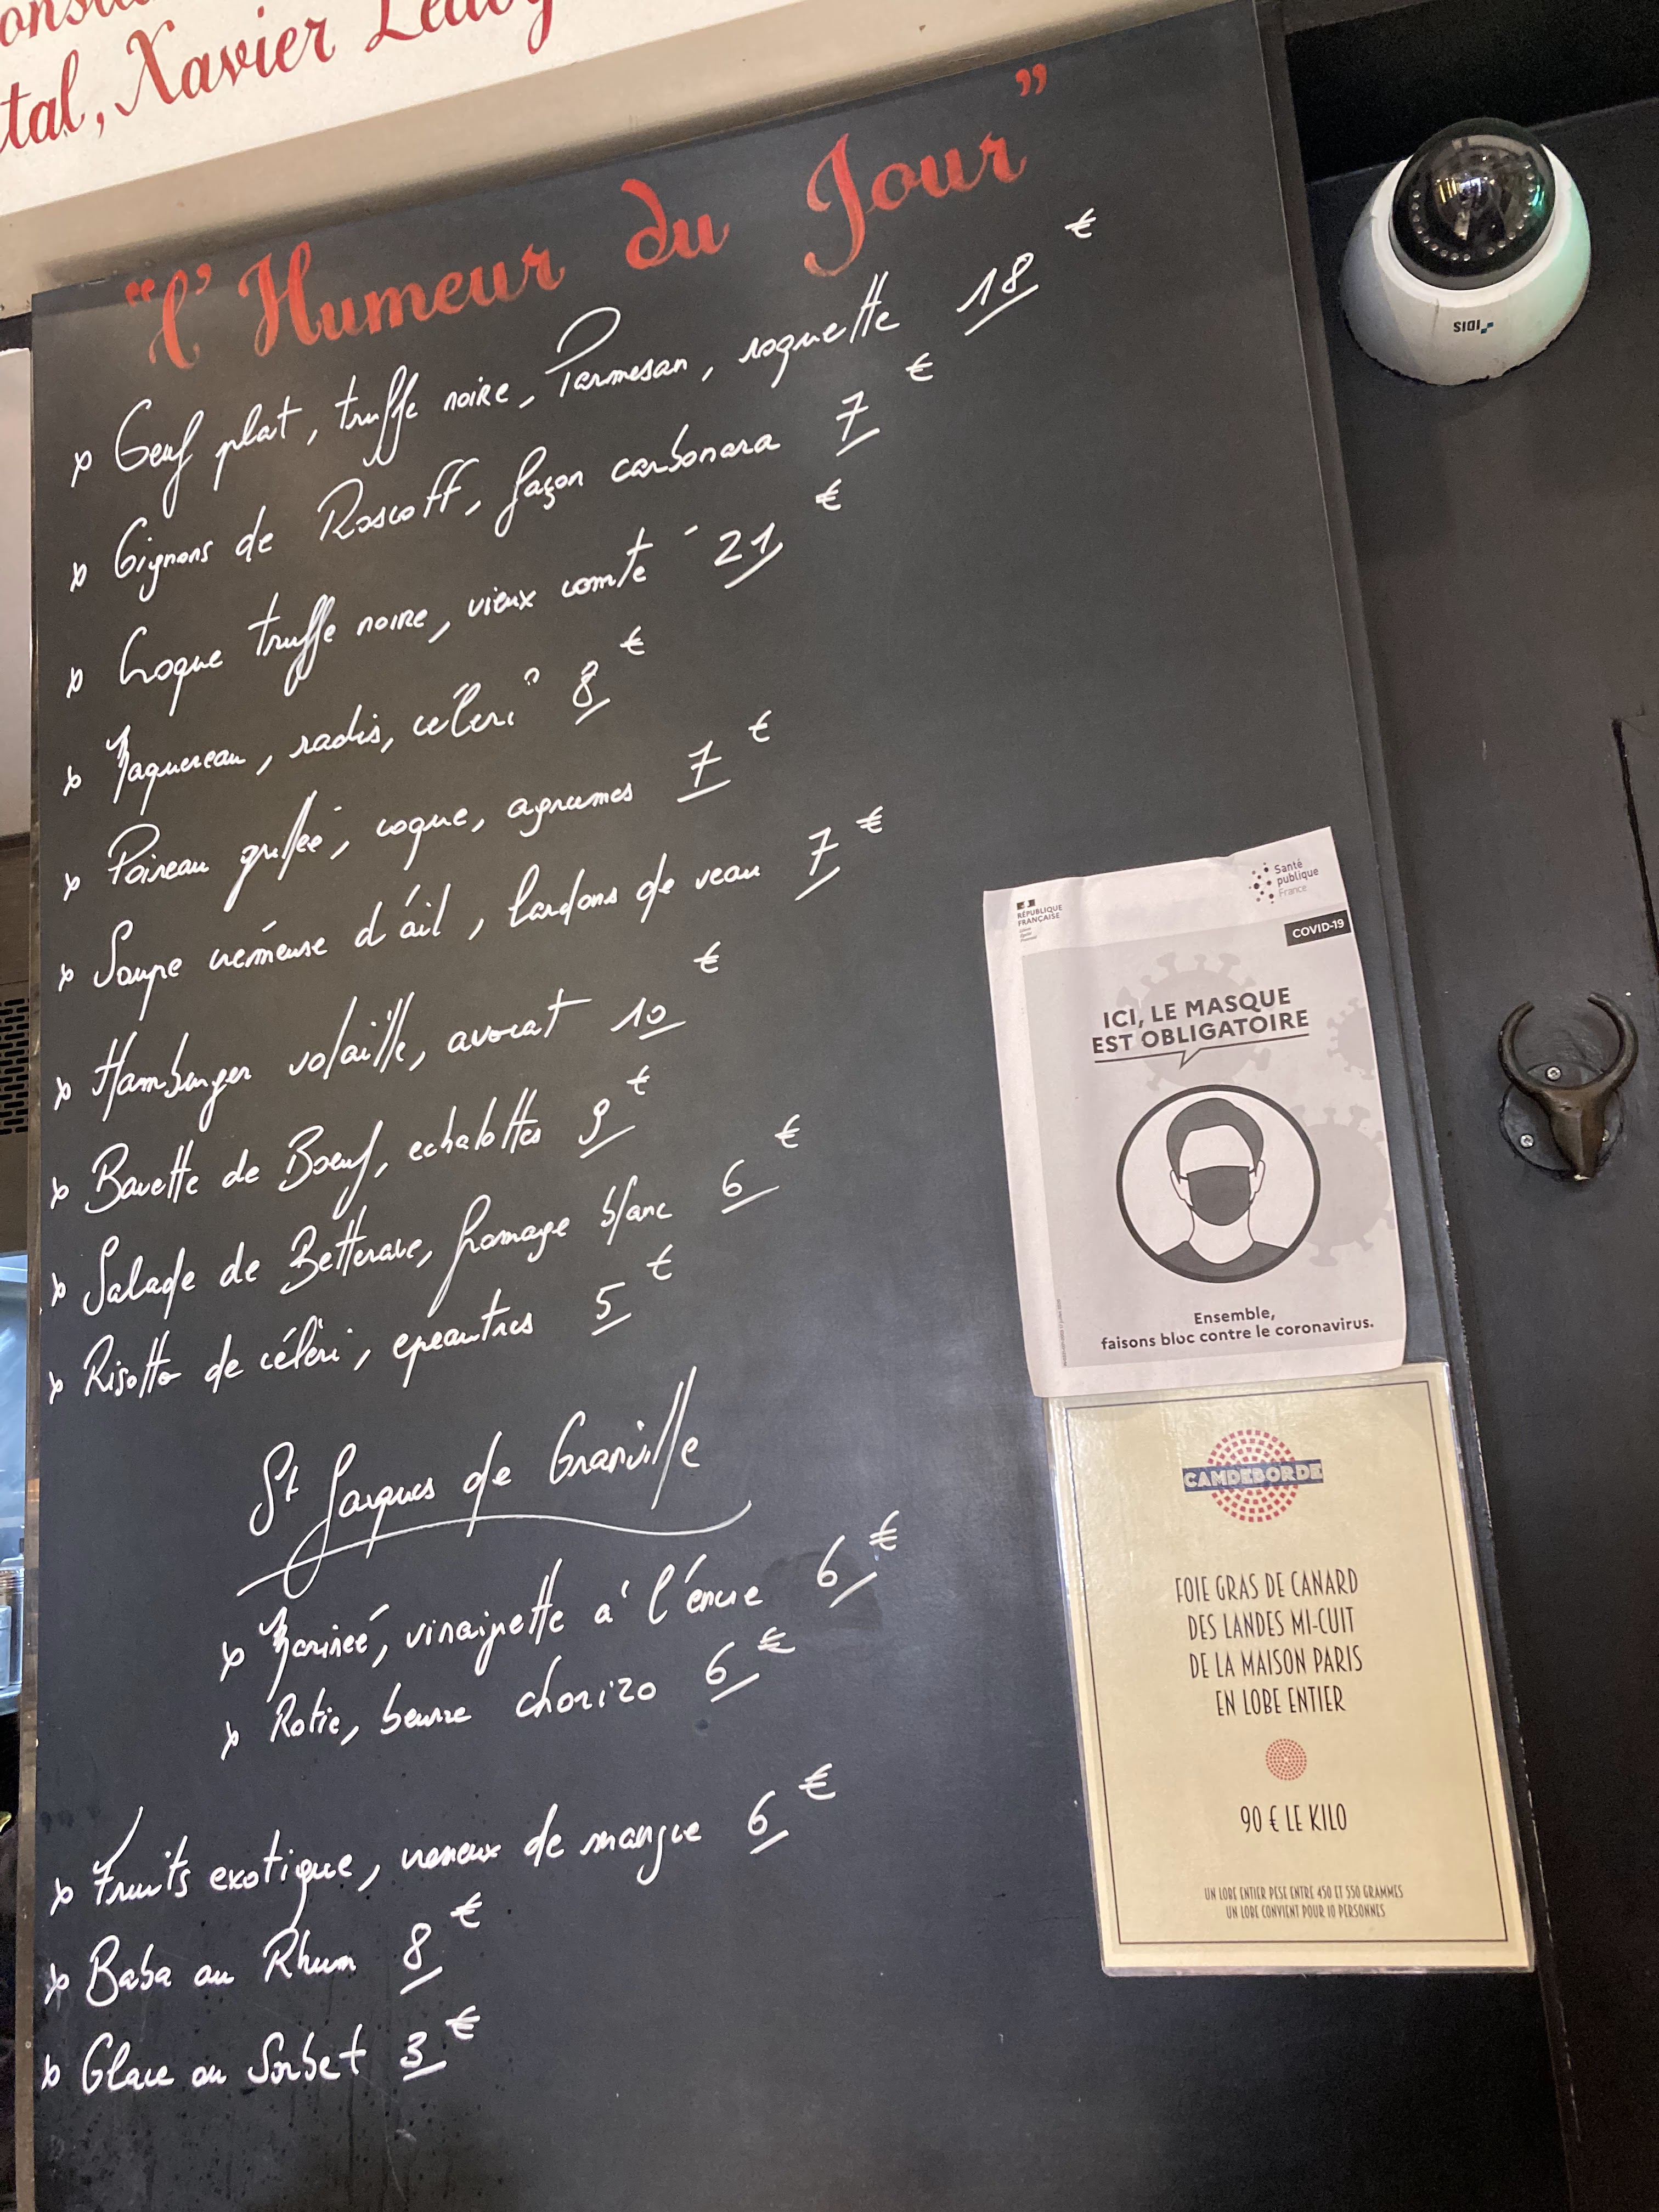 tal, Xavier
"l'Humeur du Jour"
Oeuf plat, truffe noire, Parmesan, roquette 18 €
Oignons de Roscoff, façon carbonara 7 €
Croque truffe noire, vieux comté 21 €
Maquereau, radis, céleri 8 €
Poireau grillée, coque, agrumes 7 €
Soupe crémeuse d'ail, lardons de veau 7 €
Hamburger volaille, avocat 10 €
Bavette de Boeuf, echalottes 9 €
Salade de Betterave, fromage blanc 6 €
Risotto de céléri, epeautres 5 €
St Jacques de Granville
Marineé, vinaigrette à l'encre 6 €
Rotie, beurre chorizo 6 €
Fruits exotique, cremeux de mangue 6 €
Baba au Rhum 8 €
Glace ou Sorbet 3 €
IDIS
RÉPUBLIQUE
FRANÇAISE
Santé
publique
France
COVID-19
ICI, LE MASQUE
EST OBLIGATOIRE
Ensemble,
faisons bloc contre le coronavirus.
CAMDEBORDE
FOIE GRAS DE CANARD
DES LANDES MI-CUIT
DE LA MAISON PARIS
EN LOBE ENTIER
90 € LE KILO
UN LOBE ENTIER PESE ENTRE 450 ET 550 GRAMMES
UN LOBE CONVIENT POUR 10 PERSONNES